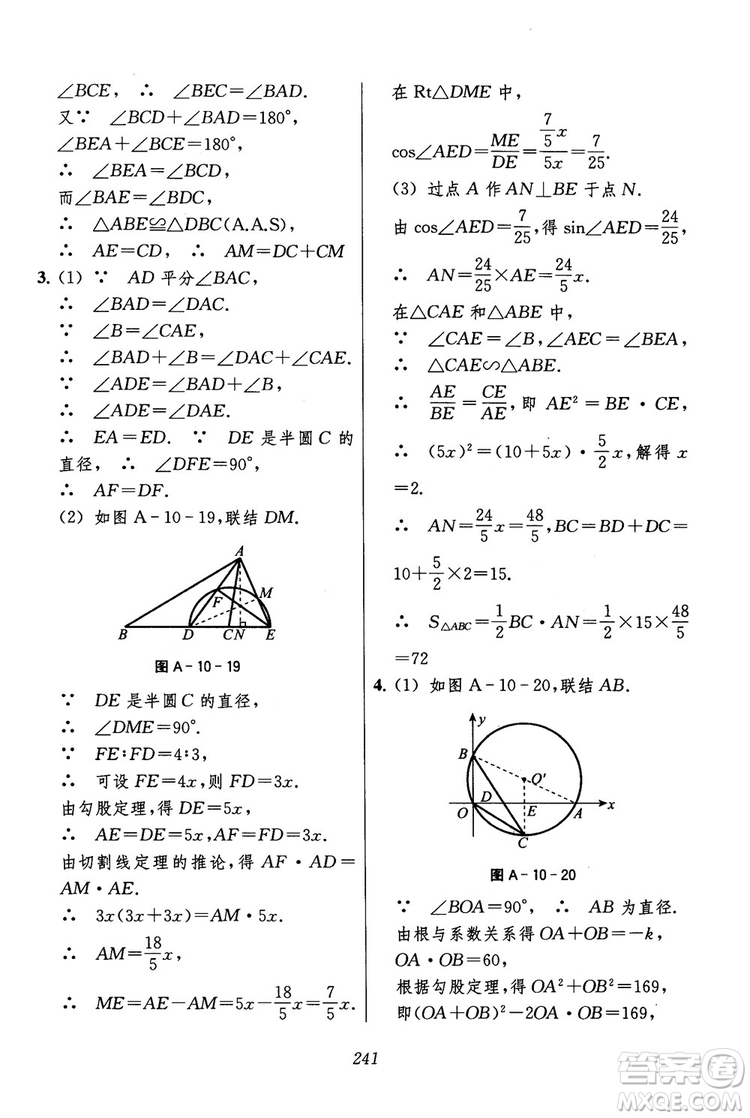 ∠BCE, ∴ ∠BEC=∠BAD.
又∵ ∠BCD+∠BAD=180°,
∠BEA+∠BCE=180°,
∴ ∠BEA=∠BCD.
而∠BAE=∠BDC,
∴ △ABE≌△DBC(A.A.S),
∴ AE=CD, ∴ AM=DC+CM
3. (1) ∵ AD 平分∠BAC,
∴ ∠BAD=∠DAC.
∵ ∠B=∠CAE,
∴ ∠BAD+∠B=∠DAC+∠CAE.
∵ ∠ADE=∠BAD+∠B,
∴ ∠ADE=∠DAE.
∴ EA=ED. ∵ DE 是半圆 C 的
直径, ∴ ∠DFE=90°,
∴ AF=DF.
(2) 如图 A-10-19,联结 DM.
A
F
M
B
D
C
N
E
图 A-10-19
∵ DE 是半圆 C 的直径,
∴ ∠DME=90°.
∵ FE∶FD=4∶3,
∴ 可设 FE=4x,则 FD=3x.
由勾股定理,得 DE=5x,
∴ AE=DE=5x,AF=FD=3x.
由切割线定理的推论,得 AF·AD=
AM·AE.
∴ 3x(3x+3x)=AM·5x.
∴ AM=18/5x,
∴ ME=AE-AM=5x-18/5x=7/5x.
在 Rt△DME 中,
cos∠AED=ME/DE=(7/5x)/5x=7/25.
(3) 过点 A 作 AN⊥BE 于点 N.
由 cos∠AED=7/25,得 sin∠AED=24/25,
∴ AN=24/25×AE=24/5x.
在△CAE 和△ABE 中,
∵ ∠CAE=∠B,∠AEC=∠BEA,
∴ △CAE∽△ABE.
∴ AE/BE=CE/AE,即 AE²=BE·CE,
∴ (5x)²=(10+5x)·5/2x,解得 x
=2.
∴ AN=24/5x=48/5,BC=BD+DC=
10+5/2×2=15.
∴ S△ABC=1/2BC·AN=1/2×15×48/5
=72
4. (1) 如图 A-10-20,联结 AB.
y
B
O′
O
D
E
A
x
C
图 A-10-20
∵ ∠BOA=90°, ∴ AB 为直径.
由根与系数关系得 OA+OB=-k,
OA·OB=60,
根据勾股定理,得 OA²+OB²=169,
即(OA+OB)²-2OA·OB=169,
241
答案圈
MXQE.COM